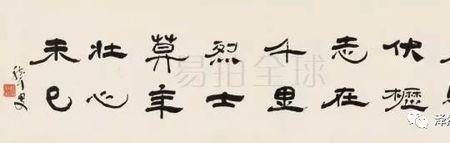 伏櫪
志在
千里
烈士
莫年
壮心
未已
易拍全球